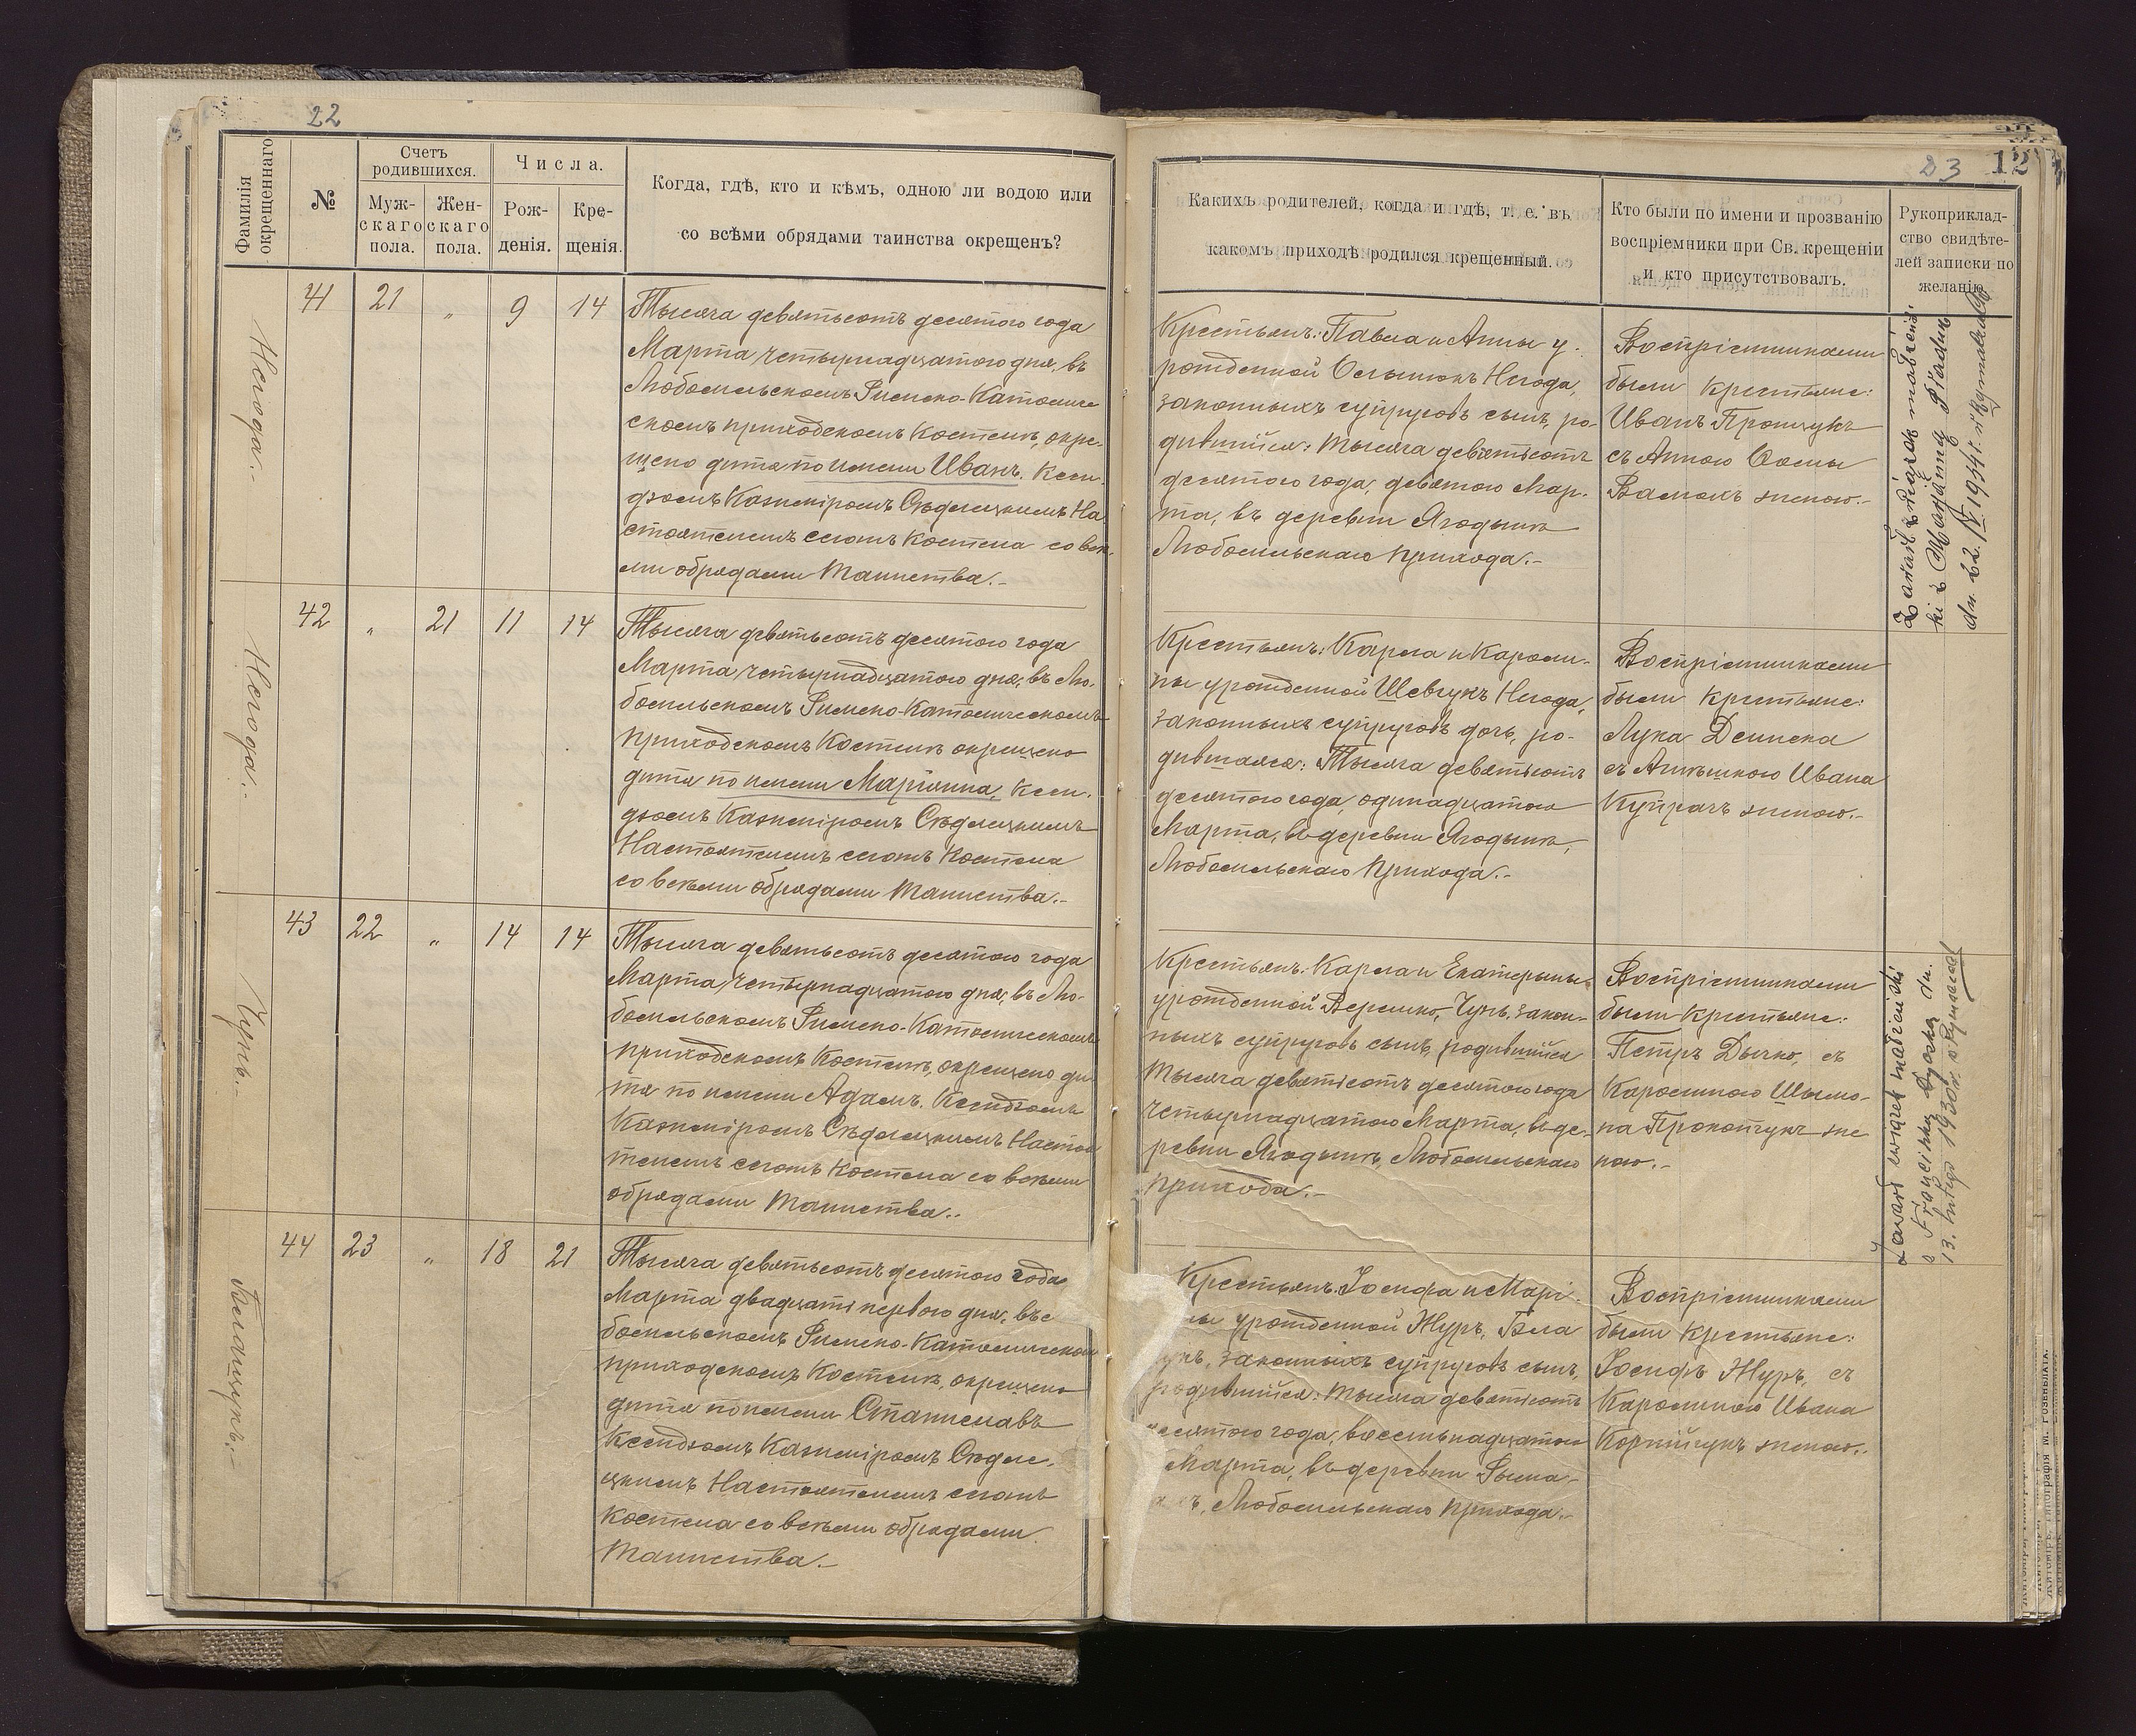 22
Фамилія окрещеннаго
№
Счетъ родившихся.
Мужскаго пола.
Женскаго пола.
Числа.
Рожденія.
Крещенія.
Когда, гдѣ, кто и кѣмъ, одною ли водою или
со всѣми обрядами таинства окрещенъ?
Негода.
41 21 „ 9 14
Тысяча девятьсотъ десятого года
Марта четырнадцатого дня, въ
Любомльскомъ Римско-Католиче
скомъ приходскомъ Костелѣ, окре-
щено дитя по имени Иванъ. Ксен-
дзомъ Казиміромъ Сѣдлецкимъ На
стоятелемъ сегожъ Костела со всѣ-
ми обрядами Таинства.-
Негода.
42 „ 21 11 14
Тысяча девятьсотъ десятого года
Марта, четырнадцатого дня, въ Лю-
бомльскомъ Римско-Католическомъ
приходскомъ Костелѣ окрещено
дитя по имени Маріянна, Ксен-
дзомъ Казиміромъ Сѣдлецкимъ
Настоятелемъ сегожъ Костела
со всѣми обрядами Таинства.-
43 22 „ 14 14
Тысяча девятьсотъ десятого года
Марта, четырнадцатого дня, въ Лю-
бомльскомъ Римско-Католическомъ
приходскомъ Костелѣ, окрещено ди
тя по имени Адамъ. Ксендзомъ
Казиміромъ Сѣдлецкимъ Настоя
телемъ сегожъ Костела со всѣми
обрядами Таинства..
44 23 „ 18 21
Тысяча девятьсотъ десятого года
Марта двадцать первого дня, въ
бомльскомъ Римско-Католическом
приходскомъ Костелѣ, окрещено
дитя по имени Станиславъ
Ксендзомъ Казиміромъ Сѣдле-
цкимъ Настоятелемъ сегожъ
Костела со всѣми обрядами
Таинства.-
23 12
Какихъ родителей, когда и гдѣ, т. е. въ
какомъ приходѣ родился крещенный.
Кто были по имени и прозванію
воспріемники при Св. крещеніи
и кто присутствовалъ.
Рукоприклад-
ство свидѣте-
лей записки по
желанію.
Крестьянъ: Павла и Анны у-
рожденной Негода,
законныхъ супруговъ сынъ, ро-
дившійся: тысяча девятьсотъ
десятого года, девятого Мар-
та, въ деревни Ягодынѣ
Любомльскаго прихода.-
Воспріемниками
были крестьяне:
Иванъ Прощукъ
съ Анною Фомы
жоною.-
Zawarł związek małżeński
z Marjanną
dn. 22. IV 1934 r.
Крестьянъ: Карла и Кароли-
ны урожденной Шевчукъ Негода,
законныхъ супруговъ дочь, ро-
дившаяся: Тысяча девятьсотъ
десятого года, одинадцатого
Марта, въ деревни Ягодынѣ,
Любомльскаго прихода.-
Воспріемниками
были крестьяне:
Лука Дениска
съ Агнѣшкою Ивана
Купрачъ жоною.-
Крестьянъ: Карла и Екатерины
урожденной Верешко, закон-
ныхъ супруговъ сынъ, родившійся
тысяча девятьсотъ десятого года
четырнадцатого Марта, въ де-
ревни Ягодынѣ, Любомльскаго
прихода.-
Воспріемниками
были крестьяне:
Петръ Дычко, съ
Каролиною Шымо-
на Прокопчукъ же
ною.-
Zawarł związek małżeński
z Franciszką dn.
13. lutego 1930 r.
Крестьянъ: Іосифа и Марі-
ны урожденной Журъ, Бѣла
законныхъ супруговъ сынъ,
родившійся: тысяча девятьсотъ
десятого года, восемьнадцатого
Марта, въ деревни Рыма-
Любомльскаго прихода.-
Воспріемниками
были крестьяне:
Іосифъ Журъ, съ
Каролиною Ивана
Корнійчукъ жоною.